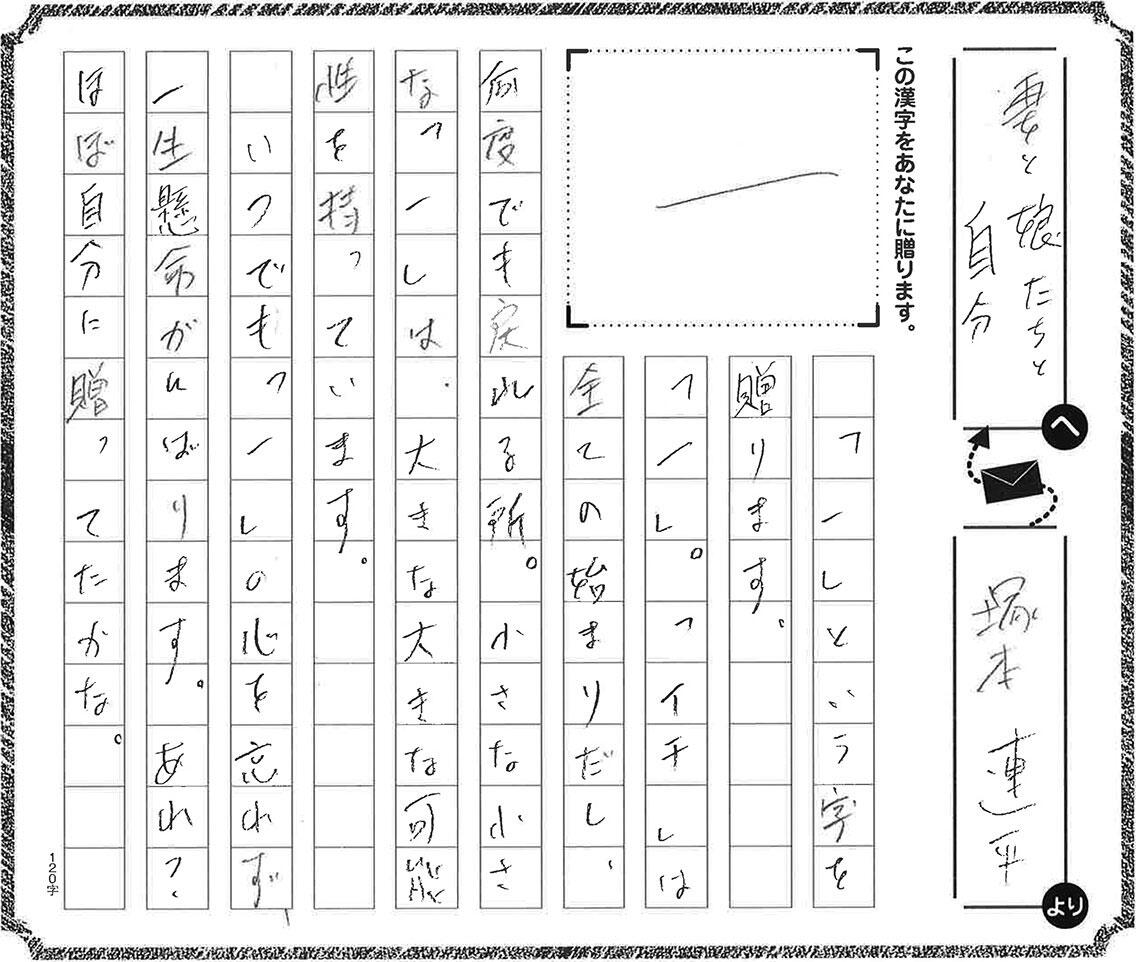 妻と娘たちと
自分
へ
塚本 連平
より
この漢字をあなたに贈ります。
一
「一」という字を
贈ります。
「一」。「イチ」は
全ての始まりだし、
何度でも戻れる所。小さな小さ
な「一」は、大きな大きな可能
性を持っています。
いつでも「一」の心を忘れず、
一生懸命がんばります。あれ?
ほぼ自分に贈ってたかな。
120字